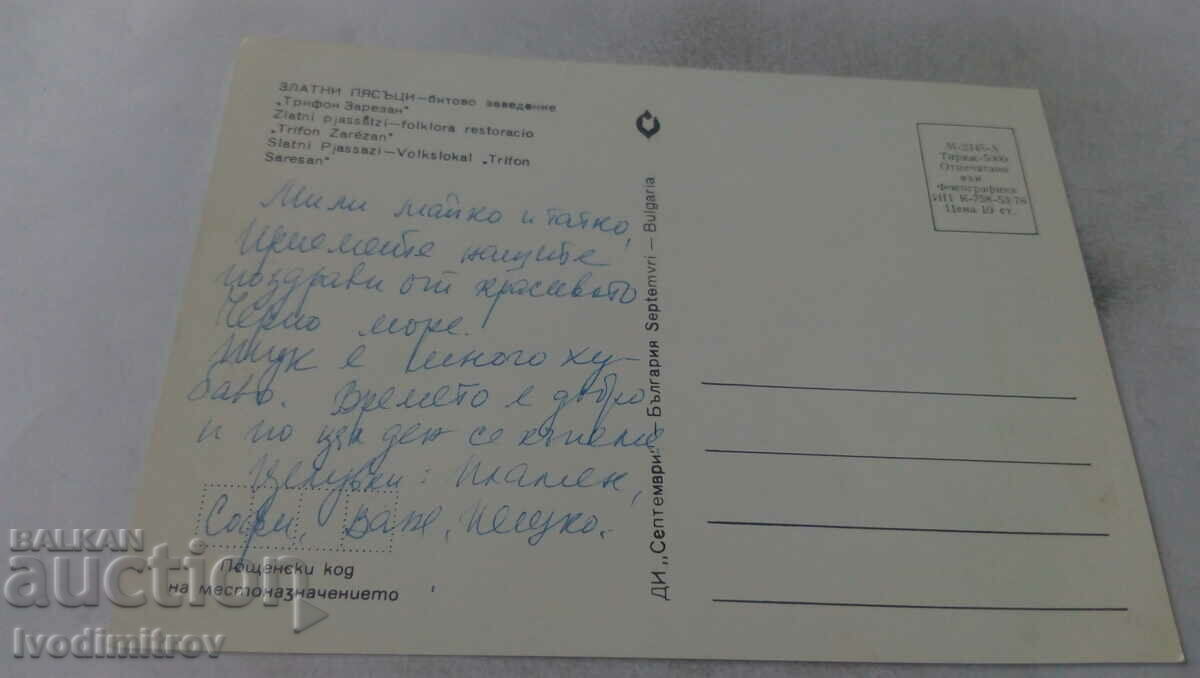 ЗЛАТНИ ПЯСЪЦИ—битово заведение
„Трифон Зарезан"
Zlatni pjassătzi—folklora restoracio
„Trifon Zarêzan"
Slatni Pjassazi—Volkslokal „Trifon
Saresan"
Мили майко и татко,
Приемете нашите
поздрави от красивото
Черно море.
Тук е много ху-
баво. Времето е добро
и по цял ден се къпеме
Целувки: Пламен,
Софи, Ваня, Пешко.
Пощенски код
на местоназначението
ДИ „Септември" — България Septemvri — Bulgaria
М-2345-А
Тираж-5000
Отпечатано
във
Фотографика
ИП К-758-53/76
Цена 10 ст.
BALKAN
auction
Ivodimitrov